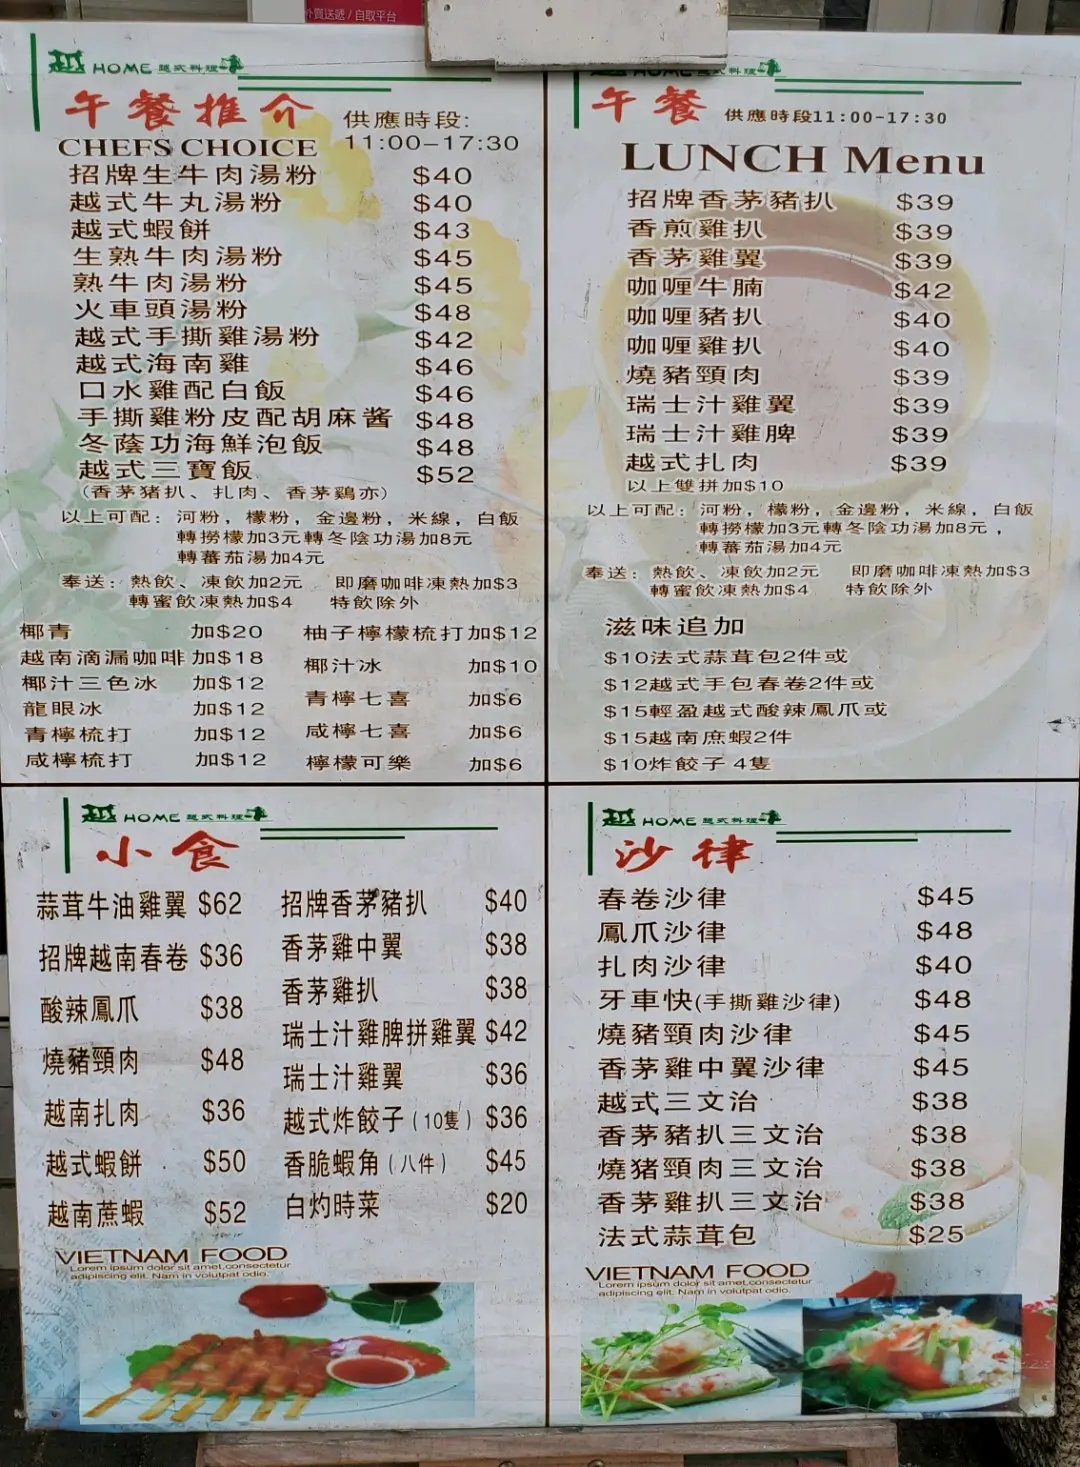 外賣送遞 / 自取平台
越 HOME 越式料理
午餐推介 供應時段:
CHEFS CHOICE 11:00-17:30
招牌生牛肉湯粉 $40
越式牛丸湯粉 $40
越式蝦餅 $43
生熟牛肉湯粉 $45
熟牛肉湯粉 $45
火車頭湯粉 $48
越式手撕雞湯粉 $42
越式海南雞 $46
口水雞配白飯 $46
手撕雞粉皮配胡麻酱 $48
冬蔭功海鮮泡飯 $48
越式三寶飯 $52
(香茅猪扒、扎肉、香茅鷄亦)
以上可配: 河粉, 檬粉, 金邊粉, 米線, 白飯
轉撈檬加3元轉冬陰功湯加8元
轉蕃茄湯加4元
奉送: 熱飲、凍飲加2元 即磨咖啡凍熱加$3
轉蜜飲凍熱加$4 特飲除外
椰青 加$20
越南滴漏咖啡 加$18
椰汁三色冰 加$12
龍眼冰 加$12
青檸梳打 加$12
咸檸梳打 加$12
柚子檸檬梳打 加$12
椰汁冰 加$10
青檸七喜 加$6
咸檸七喜 加$6
檸檬可樂 加$6
HOME 越式料理
午餐 供應時段11:00-17:30
LUNCH Menu
招牌香茅豬扒 $39
香煎雞扒 $39
香茅雞翼 $39
咖喱牛腩 $42
咖喱豬扒 $40
咖喱雞扒 $40
燒豬頸肉 $39
瑞士汁雞翼 $39
瑞士汁雞脾 $39
越式扎肉 $39
以上雙拼加$10
以上可配: 河粉, 檬粉, 金邊粉, 米線, 白飯
轉撈檬加3元轉冬陰功湯加8元,
轉蕃茄湯加4元
奉送: 熱飲、凍飲加2元 即磨咖啡凍熱加$3
轉蜜飲凍熱加$4 特飲除外
滋味追加
$10法式蒜茸包2件或
$12越式手包春卷2件或
$15輕盈越式酸辣鳳爪或
$15越南庶蝦2件
$10炸餃子 4隻
越 HOME 越式料理
小食
蒜茸牛油雞翼 $62
招牌越南春卷 $36
酸辣鳳爪 $38
燒豬頸肉 $48
越南扎肉 $36
越式蝦餅 $50
越南蔗蝦 $52
招牌香茅豬扒 $40
香茅雞中翼 $38
香茅雞扒 $38
瑞士汁雞脾拼雞翼 $42
瑞士汁雞翼 $36
越式炸餃子 (10隻) $36
香脆蝦角 (八件) $45
白灼時菜 $20
VIETNAM FOOD
Lorem ipsum dolor sit amet,consectetur
adipiscing elit. Nam in volutpat odio.
越 HOME 越式料理
沙律
春卷沙律 $45
鳳爪沙律 $48
扎肉沙律 $40
牙車快(手撕雞沙律) $48
燒豬頸肉沙律 $45
香茅雞中翼沙律 $45
越式三文治 $38
香茅豬扒三文治 $38
燒猪頸肉三文治 $38
香茅雞扒三文治 $38
法式蒜茸包 $25
VIETNAM FOOD
Lorem ipsum dolor sit amet,consectetur
adipiscing elit. Nam in volutpat odio.